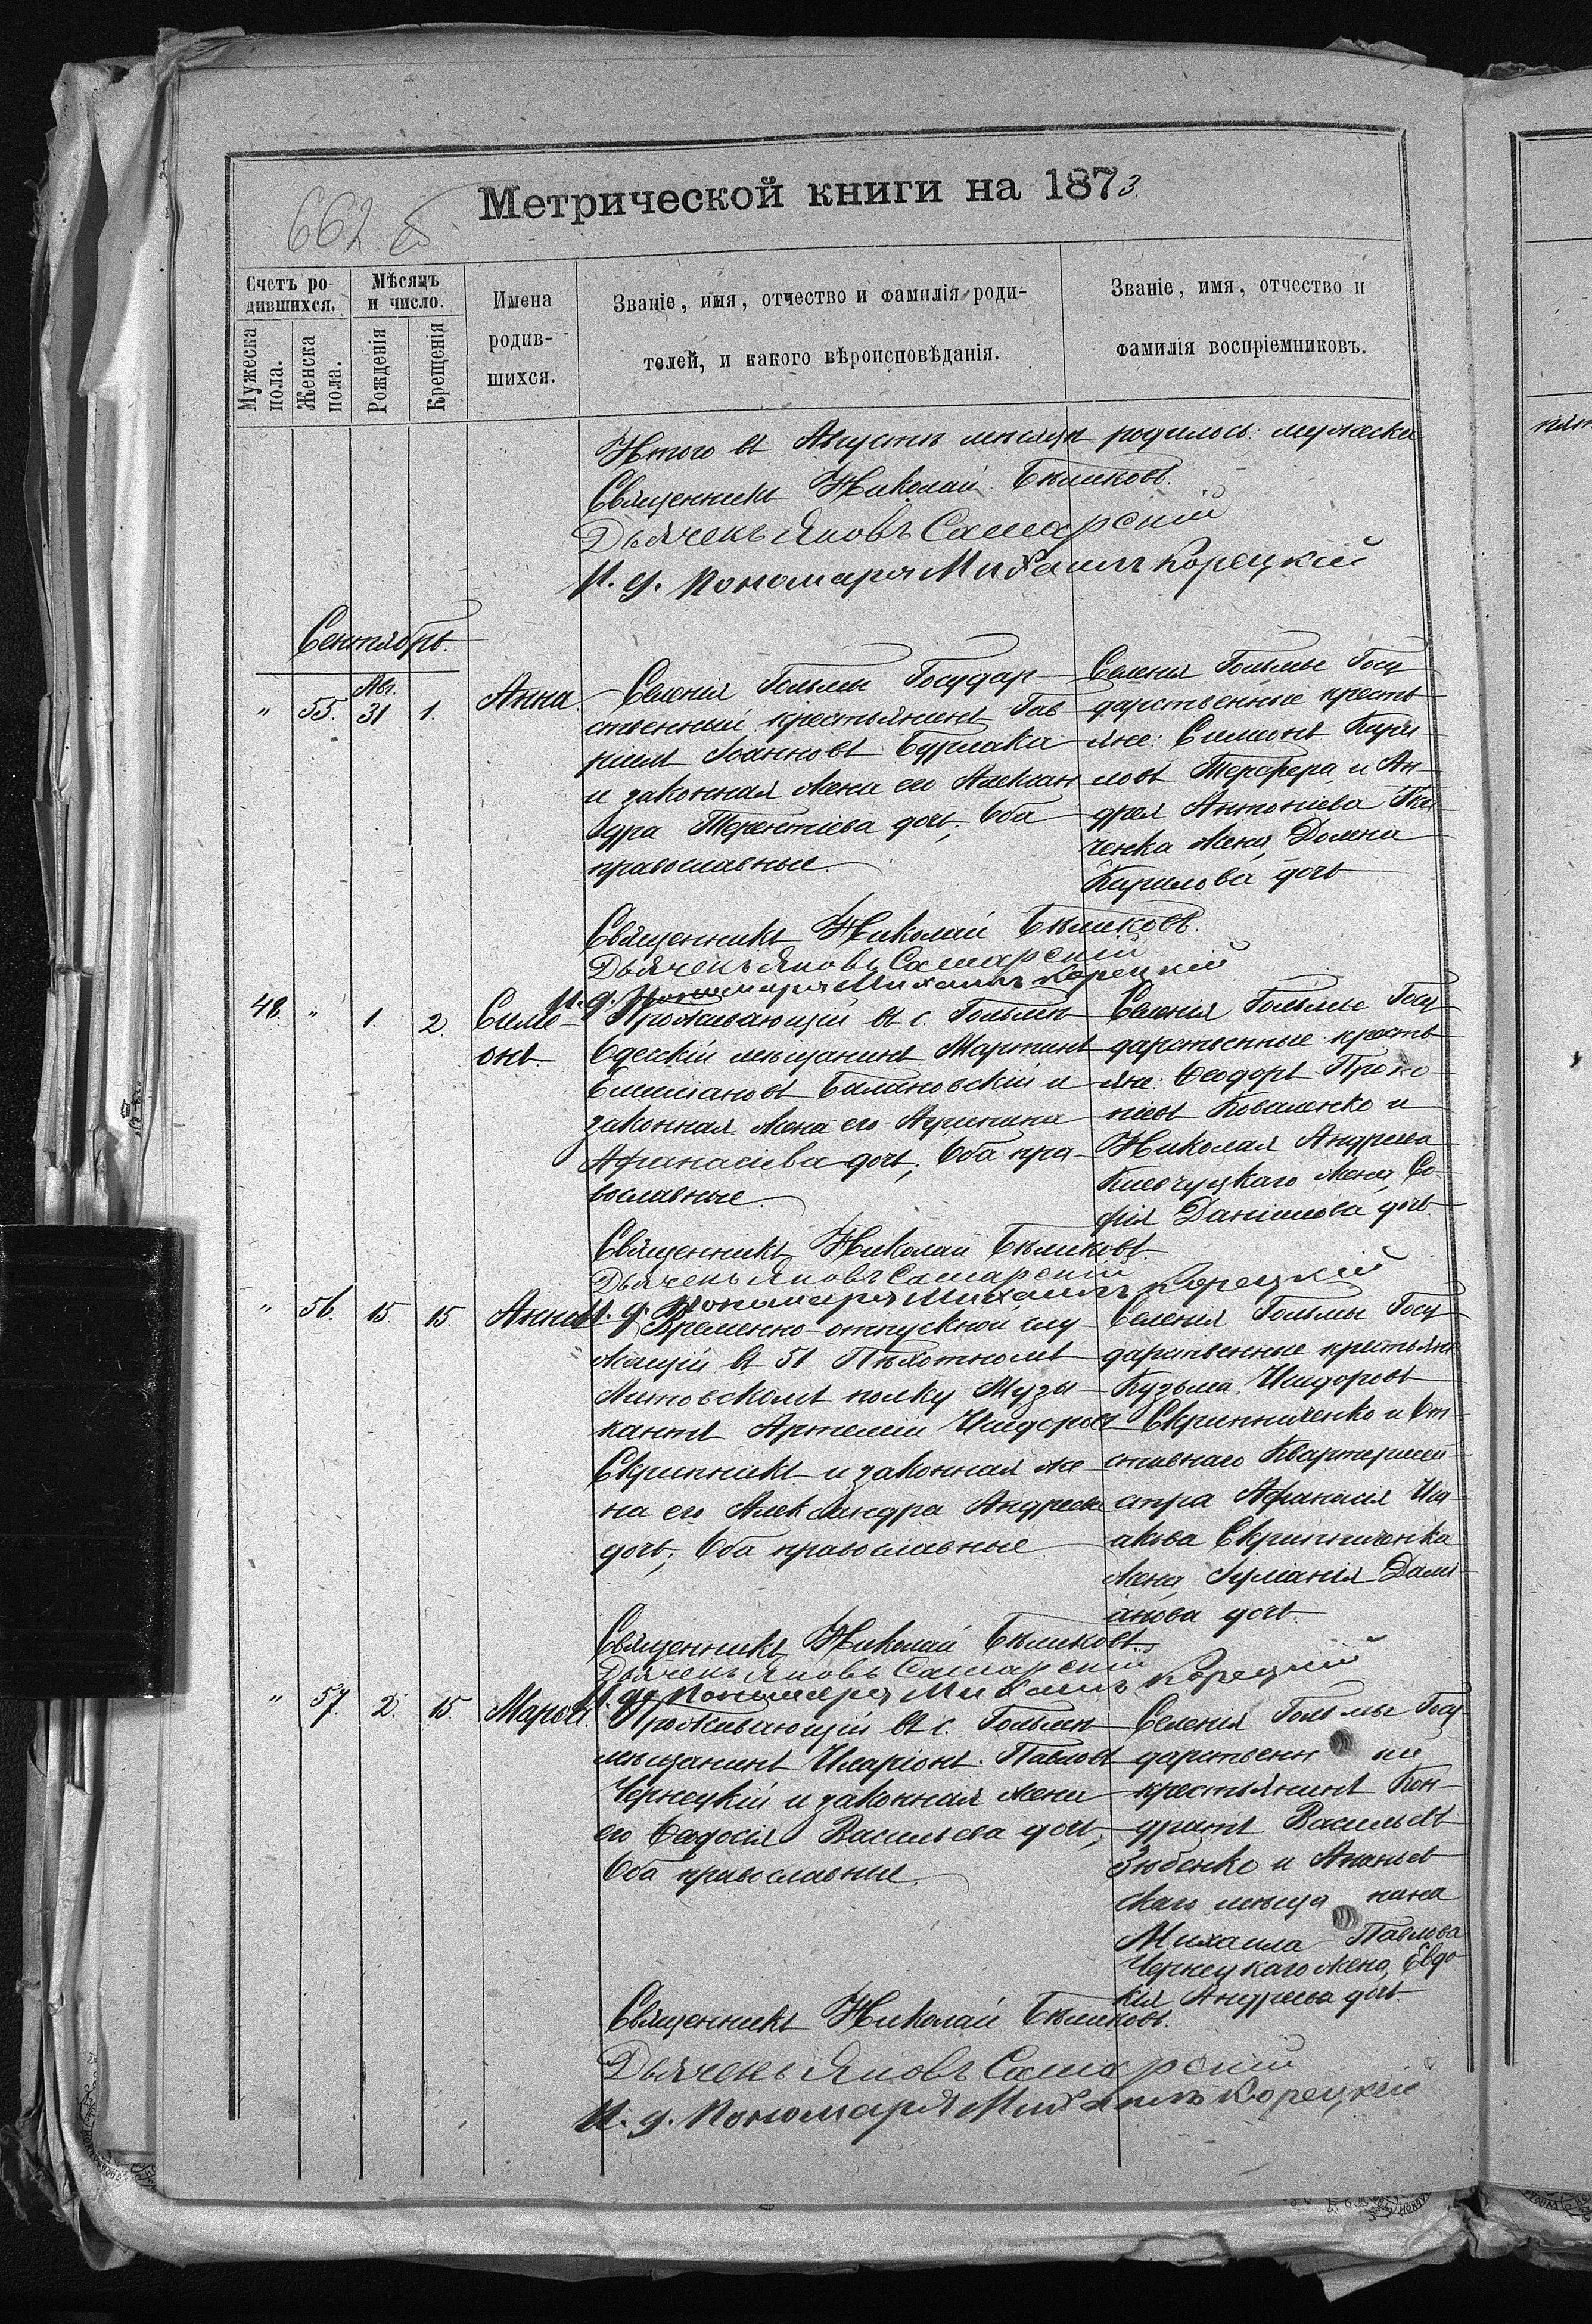 Метрической книги на 1873.
662 б
Счетъ ро-
дившихся.
Мѣсяцъ
и число.
Имена
родив-
шихся.
Званіе, имя, отчество и фамилія роди-
телей, и какого вѣроисповѣданія.
Званіе, имя, отчество и
фамилія воспріемниковъ.
Мужеска
пола.
Женска
пола.
Рожденія
Крещенія
Итого въ Августѣ мѣсяцѣ родилось: мужеска
Священникъ Николай Бѣликовъ.
Дьячекъ Яковъ Самарскій
И. д. Пономаря Михаилъ Корецкій
Сентябрь.
" 55. Авг. 31 1. Анна.
Селенія Гольмы Государ-
ственный крестьянинъ Гав-
ріилъ Іоанновъ Бурлака
и законная жена его Алексан-
дра Терентіева дочь; Оба
православные.
Селенія Гольмы Госу-
дарственные кресть-
яне: Симеонъ Кири-
ловъ Терефера и Ан-
дрея Антоніева
ченка жена, Домна
Кирилова дочь
Священникъ Николай Бѣликовъ.
Дьячекъ Яковъ Самарскій
И. д. Пономаря Михаилъ Корецкій
48. " 1. 2. Симе-
онъ.
Проживающій въ с. Гольмѣ
Одесскій мѣщанинъ Мартинъ
Балановскій и
законная жена его Агрипина
Афанасіева дочь; Оба пра-
вославные.
Селенія Гольмы Госу-
дарственные кресть-
яне: Ѳеодоръ Проко-
піевъ Коваленко и
Николая Андреева
жена, Со-
фія Даніилова дочь.
Священникъ Николай Бѣликовъ.
Дьячекъ Яковъ Самарскій
И. д. Пономаря Михаилъ Корецкій
" 56. 15. 15. Анна
Временно-отпускной слу-
жащій въ 51 Пѣхотномъ
Литовскомъ полку Музы-
кантъ Артемій Исидоровъ
Скрипникъ и законная же-
на его Александра Андреева
дочь; Оба православные
Селенія Гольмы Госу-
дарственные крестьяне
Кузьма Исидоровъ
Скрипниченко и От-
ставнаго Квартермей-
стра Афанасія Иса-
акова Скрипниченка
жена, Іуліанія Дамі-
анова дочь.
Священникъ Николай Бѣликовъ.
Дьячекъ Яковъ Самарскій
И. д. Пономаря Михаилъ Корецкій
" 57. 2. 15. Марѳа.
Проживающій въ с. Гольмѣ
мѣщанинъ Иларіонъ Павловъ
Чернецкій и законная жена
его Ѳеодосія Васильева дочь;
Оба православные.
Селенія Гольмы Госу-
дарственный
крестьянинъ Кон-
дратъ Васильевъ
Зюбенко и Ананьев-
скаго мѣщанина
Михаила Павлова
Чернецкаго жена, Евдо-
кія Андреева дочь.
Священникъ Николай Бѣликовъ.
Дьячекъ Яковъ Самарскій
И. д. Пономаря Михаилъ Корецкій